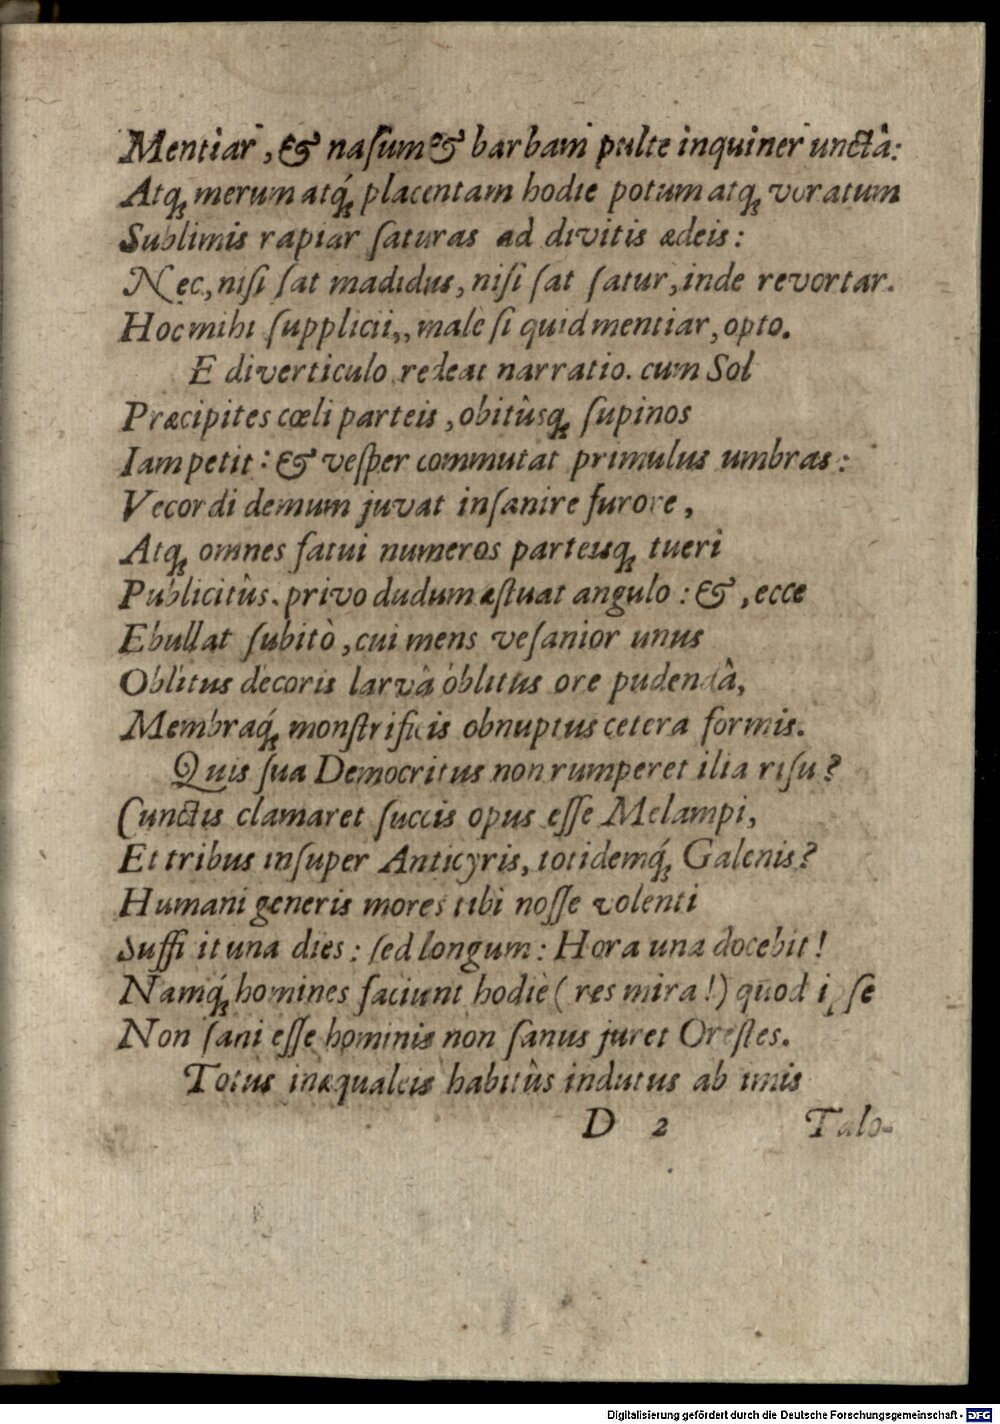 Mentiar, & naſum & barbam pulte inquiner unctâ:
Atq; merum atq́; placentam hodie potum atq; voratum
Sublimis rapiar ſaturas ad divitis ædeis:
Nec, niſi ſat madidus, niſi ſat ſatur, inde revortar.
Hoc mihi ſupplicii,, male ſi quid mentiar, opto.
E diverticulo redeat narratio. cum Sol
Præcipites cœli parteis, obitûsq; ſupinos
Iam petit: & veſper commutat primulus umbras:
Vecordi demum juvat inſanire furore,
Atq; omnes fatui numeros parteisq; tueri
Publicitùs. privo dudum æſtuat angulo: &, ecce
Ebullat ſubitò, cui mens veſanior unus
Oblitus decoris larvâ oblitus ore pudendâ,
Membraq́; monſtrificis obnuptus cetera formis.
Quis ſua Democritus non rumperet ilia riſu?
Cunctis clamaret ſuccis opus eſſe Melampi,
Et tribus inſuper Anticyris, totidemq́; Galenis?
Humani generis mores tibi noſſe volenti
Suffi it una dies: ſed longum: Hora una docebit!
Namq́; homines faciunt hodiè (res mira!) quod ipſe
Non ſani eſſe hominis non ſanus juret Oreſtes.
Totus inæqualeis habitûs indutus ab imis
D 2 Talo-
Digitalisierung gefördert durch die Deutsche Forschungsgemeinschaft - DFG